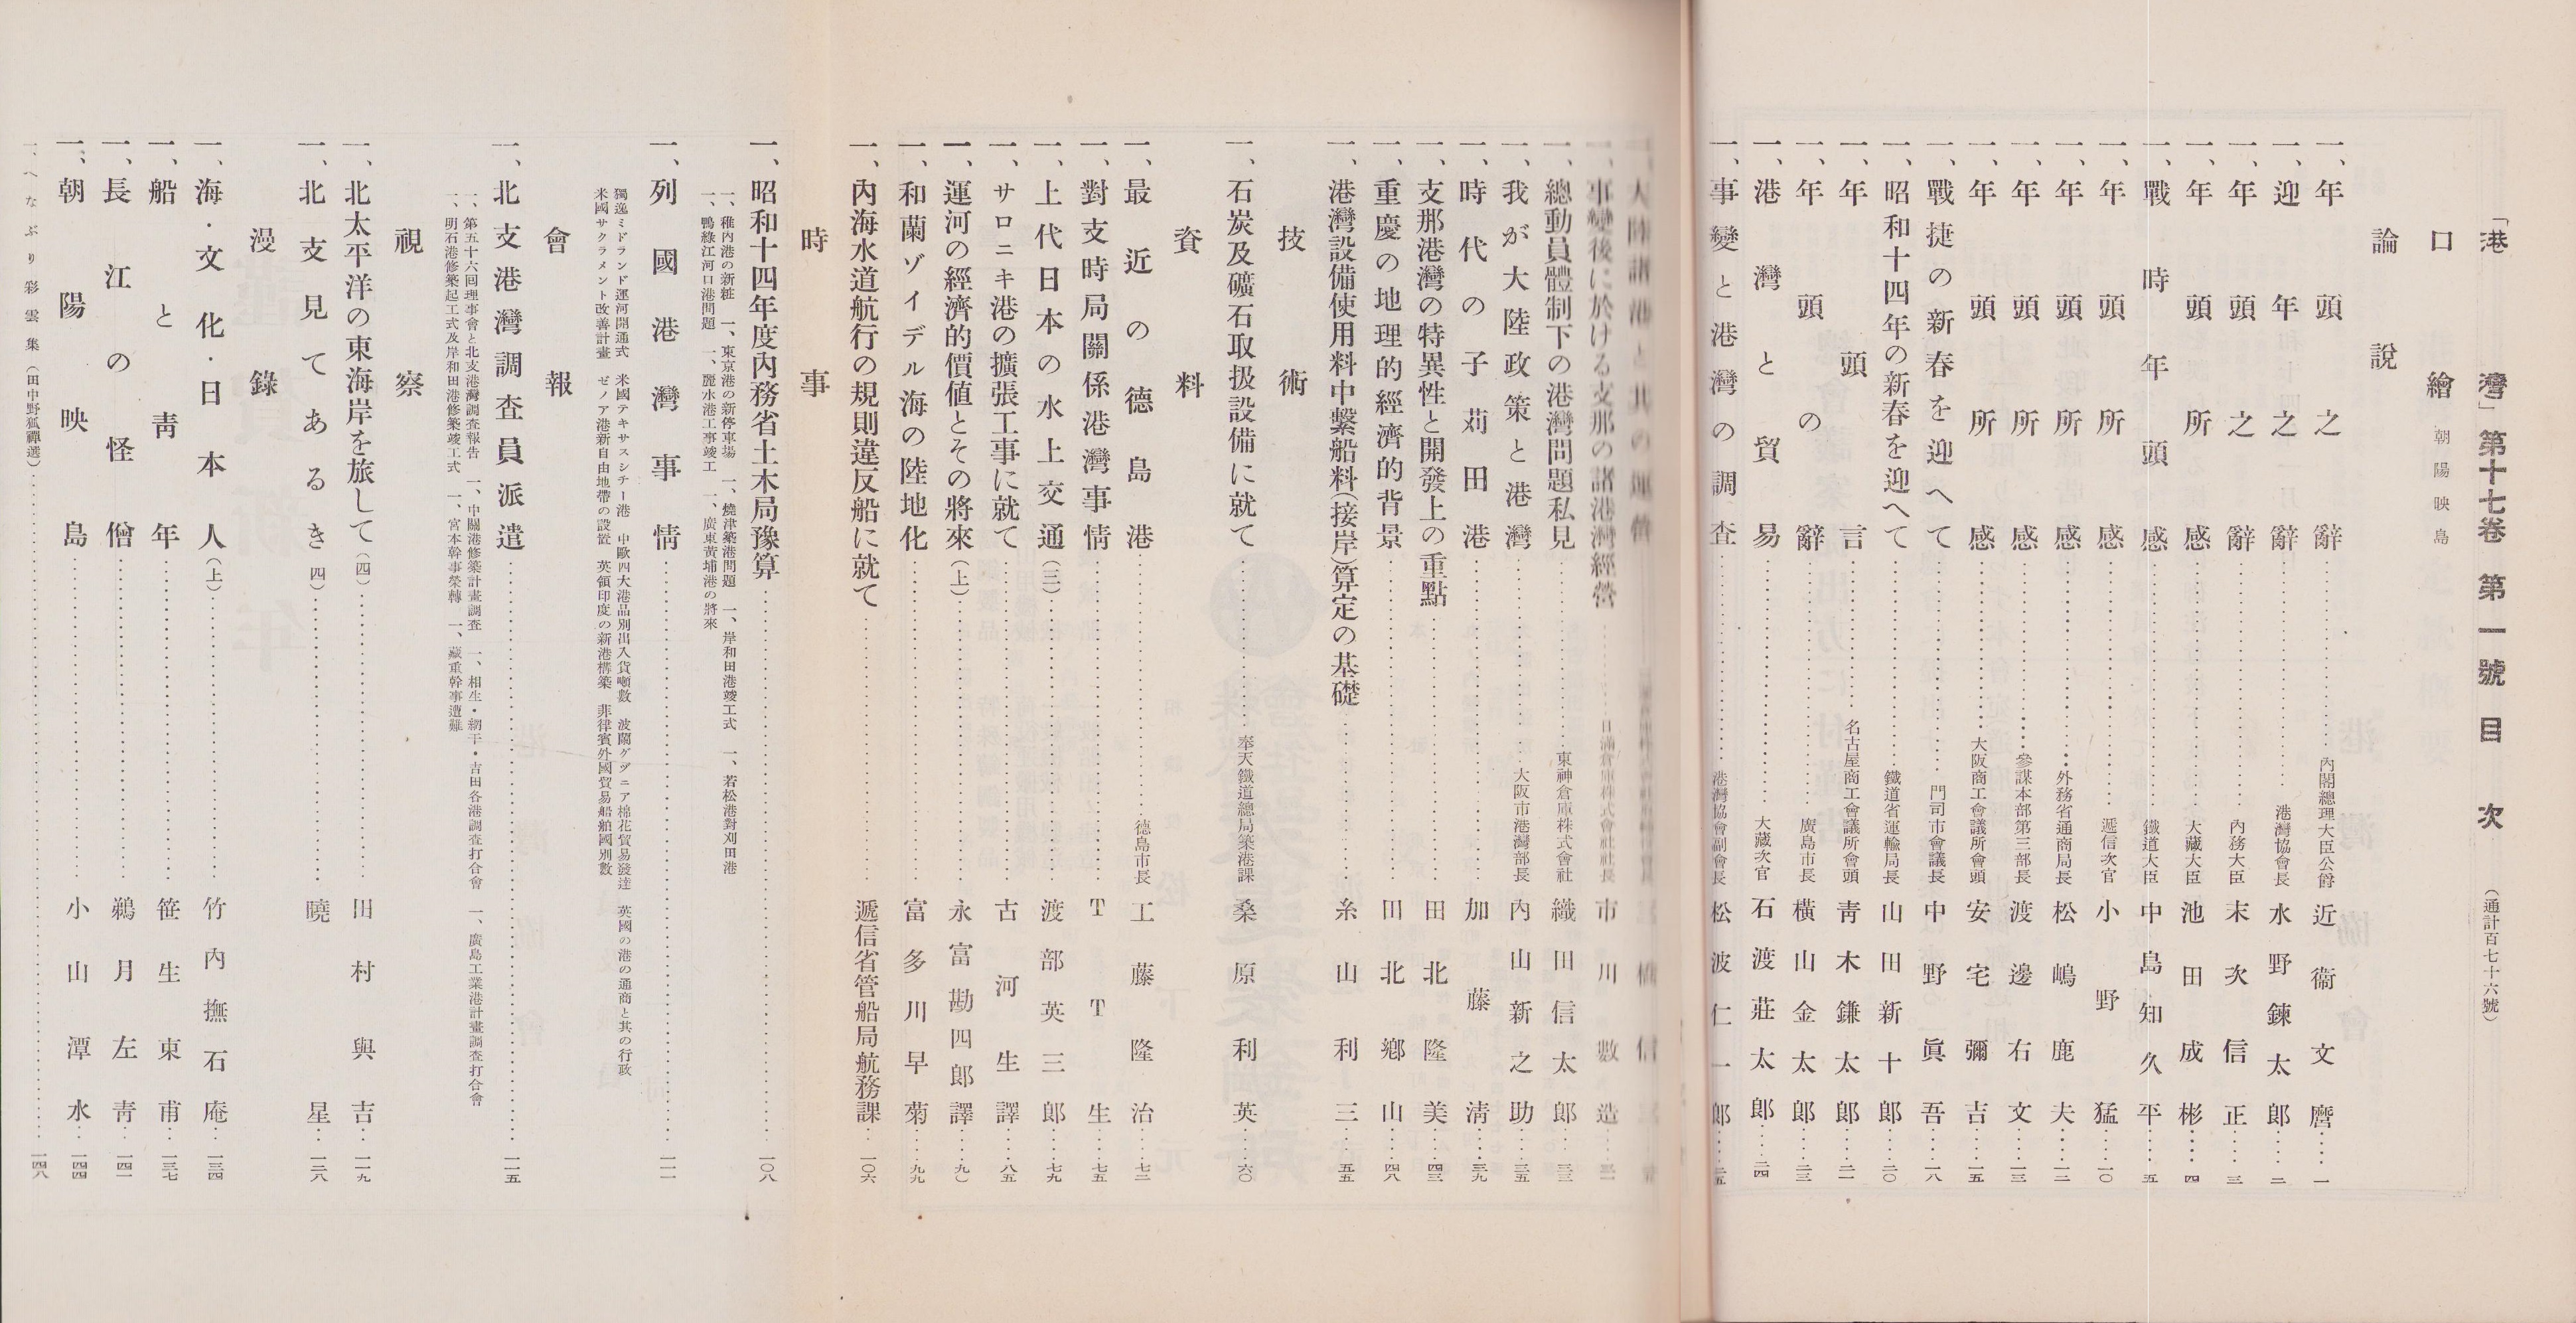 「港灣」第十七卷 第一號 目次 （通計百七十六號）
口繪 朝陽映島
論說
一、年頭之辭 內閣總理大臣公爵 近衞文麿 一
一、迎年之辭 港灣協會長 水野鍊太郎 二
一、年頭之辭 內務大臣 末次信正 三
一、年頭所感 大藏大臣 池田成彬 四
一、戰時年頭感 鐵道大臣 中島知久平 五
一、年頭所感 遞信次官 小野猛 一〇
一、年頭所感 外務省通商局長 松嶋鹿夫 一二
一、年頭所感 參謀本部第三部長 渡邊右文 一三
一、年頭所感 大阪商工會議所會頭 安宅彌吉 一五
一、戰捷の新春を迎へて 門司市會議長 中野眞吾 一八
一、昭和十四年の新春を迎へて 鐵道省運輸局長 山田新十郎 二〇
一、年頭言 名古屋商工會議所會頭 靑木鎌太郎 二一
一、年頭の辭 廣島市長 橫山金太郎 二三
一、港灣と貿易 大藏次官 石渡莊太郎 二四
一、事變と港灣の調査 港灣協會副會長 松波仁一郎 二五
一、大陸諸港と其の運營
一、事變後に於ける支那の諸港灣經營 日滿倉庫株式會社社長 市川數造
一、總動員體制下の港灣問題私見 東神倉庫株式會社 織田信太郎 三三
一、我が大陸政策と港灣 大阪市港灣部長 內山新之助 三五
一、時代の子苅田港 加藤淸 三九
一、支那港灣の特異性と開發上の重點 田北隆美 四三
一、重慶の地理的經濟的背景 田北鄕山 四八
一、港灣設備使用料中繫船料(接岸)算定の基礎 糸山利三 五五
技術
一、石炭及礦石取扱設備に就て 奉天鐵道總局築港課 桑原利英 六〇
資料
一、最近の德島港 德島市長 工藤隆治 七二
一、對支時局關係港灣事情 TT生 七五
一、上代日本の水上交通（三） 渡部英三郎 七九
一、サロニキ港の擴張工事に就て 古河生譯 八五
一、運河の經濟的價値とその將來（上） 永富勘四郎譯 九〇
一、和蘭ゾイデル海の陸地化 富多川早菊 九九
一、內海水道航行の規則違反船に就て 遞信省管船局航務課 一〇六
時事
一、昭和十四年度內務省土木局豫算 一〇八
一、稚內港の新粧 一、東京港の新停車場 一、燒津築港問題 一、岸和田港竣工式 一、若松港對刈田港
一、鴨綠江河口港問題 一、麗水港工事竣工 一、廣東黃埔港の將來
一、列國港灣事情 一一一
獨逸ミドランド運河開通式 米國テキサスシチー港 中歐四大港品別出入貨噸數 波蘭グヂニア棉花貿易發達 英國の港の通商と其の行政
米國サクラメント改善計畫 ゼノア港新自由地帶の設置 英領印度の新港構築 非律賓外國貿易船舶國別數
會報
一、北支港灣調査員派遣 一一五
一、第五十六回理事會と北支港灣調査報告 一、中關港修築計畫調査 一、相生・網干・吉田各港調査打合會 一、廣島工業港計畫調査打合會
一、明石港修築起工式及岸和田港修築竣工式 一、宮本幹事榮轉 一、藏重幹事遭難
視察
一、北太平洋の東海岸を旅して（四） 田村與吉 一一九
一、北支見てあるき（四） 曉星 一二八
漫錄
一、海・文化・日本人（上） 竹內撫石庵 一三四
一、船と靑年 笹生東甫 一三七
一、長江の怪僧 鵜月左靑 一四一
一、朝陽映島 小山潭水 一四四
一、へなぶり彩雲集（田中野狐禪選） 一四八